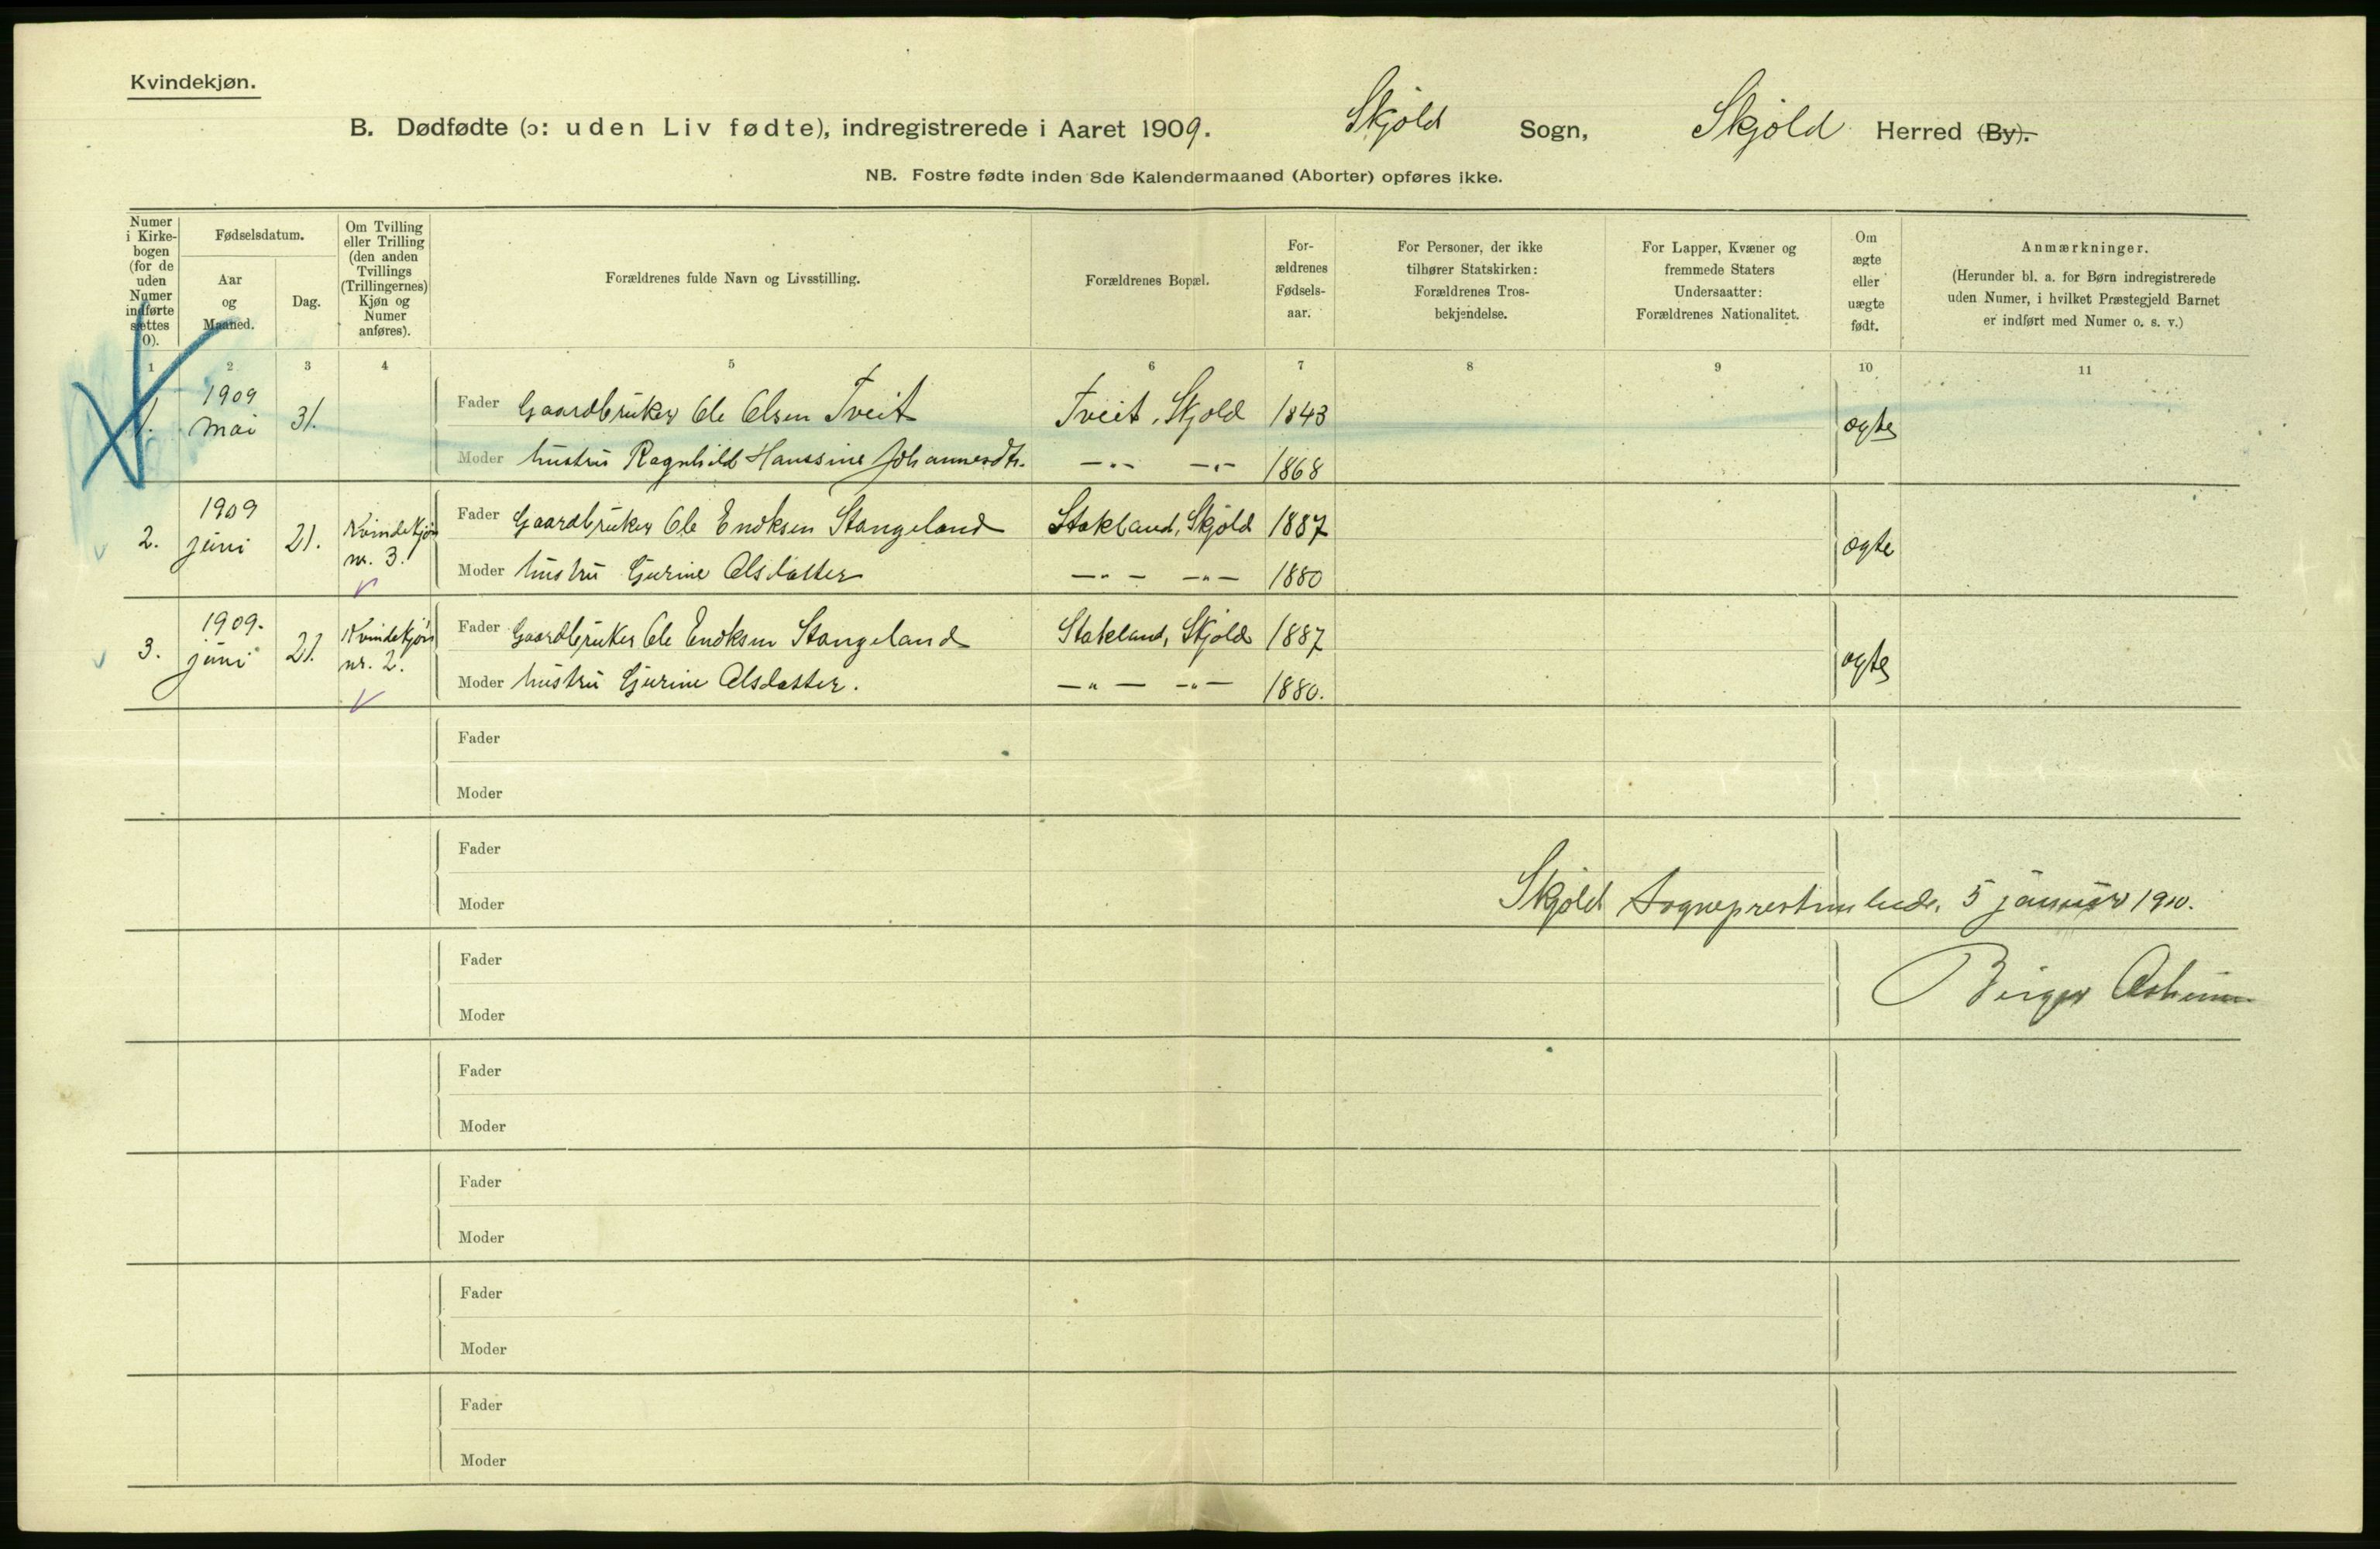 Kvindekjøn.
B. Dødfødte (ɔ: uden Liv fødte), indregistrerede i Aaret 1909. Skjold Sogn, Skjold Herred (By).
NB. Fostre fødte inden 8de Kalendermaaned (Aborter) opføres ikke.
Numer i Kirkebogen (for de uden Numer indførte sættes 0).
Fødselsdatum.
Aar og Maaned.
Dag.
Om Tvilling eller Trilling (den anden Tvillings (Trillingernes) Kjøn og Numer anføres).
Forældrenes fulde Navn og Livsstilling.
Forældrenes Bopæl.
For-
ældrenes
Fødsels-
aar.
For Personer, der ikke
tilhører Statskirken:
Forældrenes Tros-
bekjendelse.
For Lapper, Kvæner og
fremmede Staters
Undersaatter:
Forældrenes Nationalitet.
Om
ægte
eller
uægte
født.
Anmærkninger.
(Herunder bl. a. for Børn indregistrerede
uden Numer, i hvilket Præstegjeld Barnet
er indført med Numer o. s. v.)
1 2 3 4 5 6 7 8 9 10 11
1. 1909 mai 31. Fader Gaardbruker Ole Olsen Tveit Tveit, Skjold 1843 ægte
Moder hustru Ragnhild Hanssine Johannesdtr. —„— —„— 1868
2. 1909 juni 21. Kvindekjøn nr. 3. Fader Gaardbruker Ole Enoksen Stangeland Stakland, Skjold 1887 ægte
Moder hustru Gurine Olsdatter —„— —„— 1880
3. 1909. juni 21. Kvindekjøn nr. 2. Fader Gaardbruker Ole Enoksen Stangeland Stakland, Skjold 1887 ægte
Moder hustru Gurine Olsdatter. —„— —„— 1880.
Fader
Moder
Fader
Moder
Skjold Sogneprestembede, 5 januar 1910.
Fader
Birger
Moder
Fader
Moder
Fader
Moder
Fader
Moder
Fader
Moder